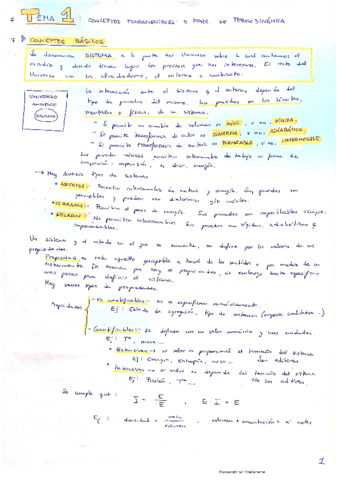 TEMA 1: CONCEPTOS FUNDAMENTALES Y PPIOS. DE TERMODINÁMICA
CONCEPTOS BÁSICOS
Se denomina SISTEMA a la parte del Universo sobre la cual centramos el
estudio y donde tienen lugar los procesos que nos interesan. El resto del
Universo son los alrededores, el entorno o ambiente.
UNIVERSO
SISTEMA
La interacción entre el sistema y el entorno depende del
tipo de paredes del mismo. Las paredes son los límites,
de un sistema.
- Si permite un cambio de volumen es MÓVIL, y si no, RÍGIDA.
- Si permite transferencia de calor es DIATERMA, y si no, ADIABÁTICA.
- Si permite transferencia de materia es PERMEABLE, y si no, IMPERMEABLE.
Las paredes móviles permiten intercambio de trabajo en forma de
compresión - expansión, es decir, energía.
→ Hay diversos tipos de sistemas
ABIERTOS: Permiten intercambios de materia y energía. Sus paredes son
permeables y pueden ser diatermas y/o móviles.
CERRADOS: Permiten el paso de energía. Sus paredes son impermeables
AISLADOS: No permiten intercambios. Sus paredes son rígidas, adiabáticas e
impermeables.
Un sistema y el estado en el que se encuentra, se define por los valores de sus
propiedades.
Propiedad es todo aquello susceptible a través de los sentidos o por medio de un
instrumento.
para definir el sistema.
Hay varios tipos de propiedades.
Propiedades
- No cuantificables: no se especifican numéricamente.
Ej: Estado de agregación, tipo de sustancia
- Cuantificables: se definen con un valor numérico y unas unidades.
Ej: Tª, masa...
Extensivas → su valor es proporcional al tamaño del sistema
Ej: Energía, Entropía, masa... Son aditivas
Intensivas → el valor no depende del tamaño del sistema
Ej: Presión, Tª... No son aditivas
Se cumple que: I = E/E , E · I = E
Ej: densidad = masa/volumen
1